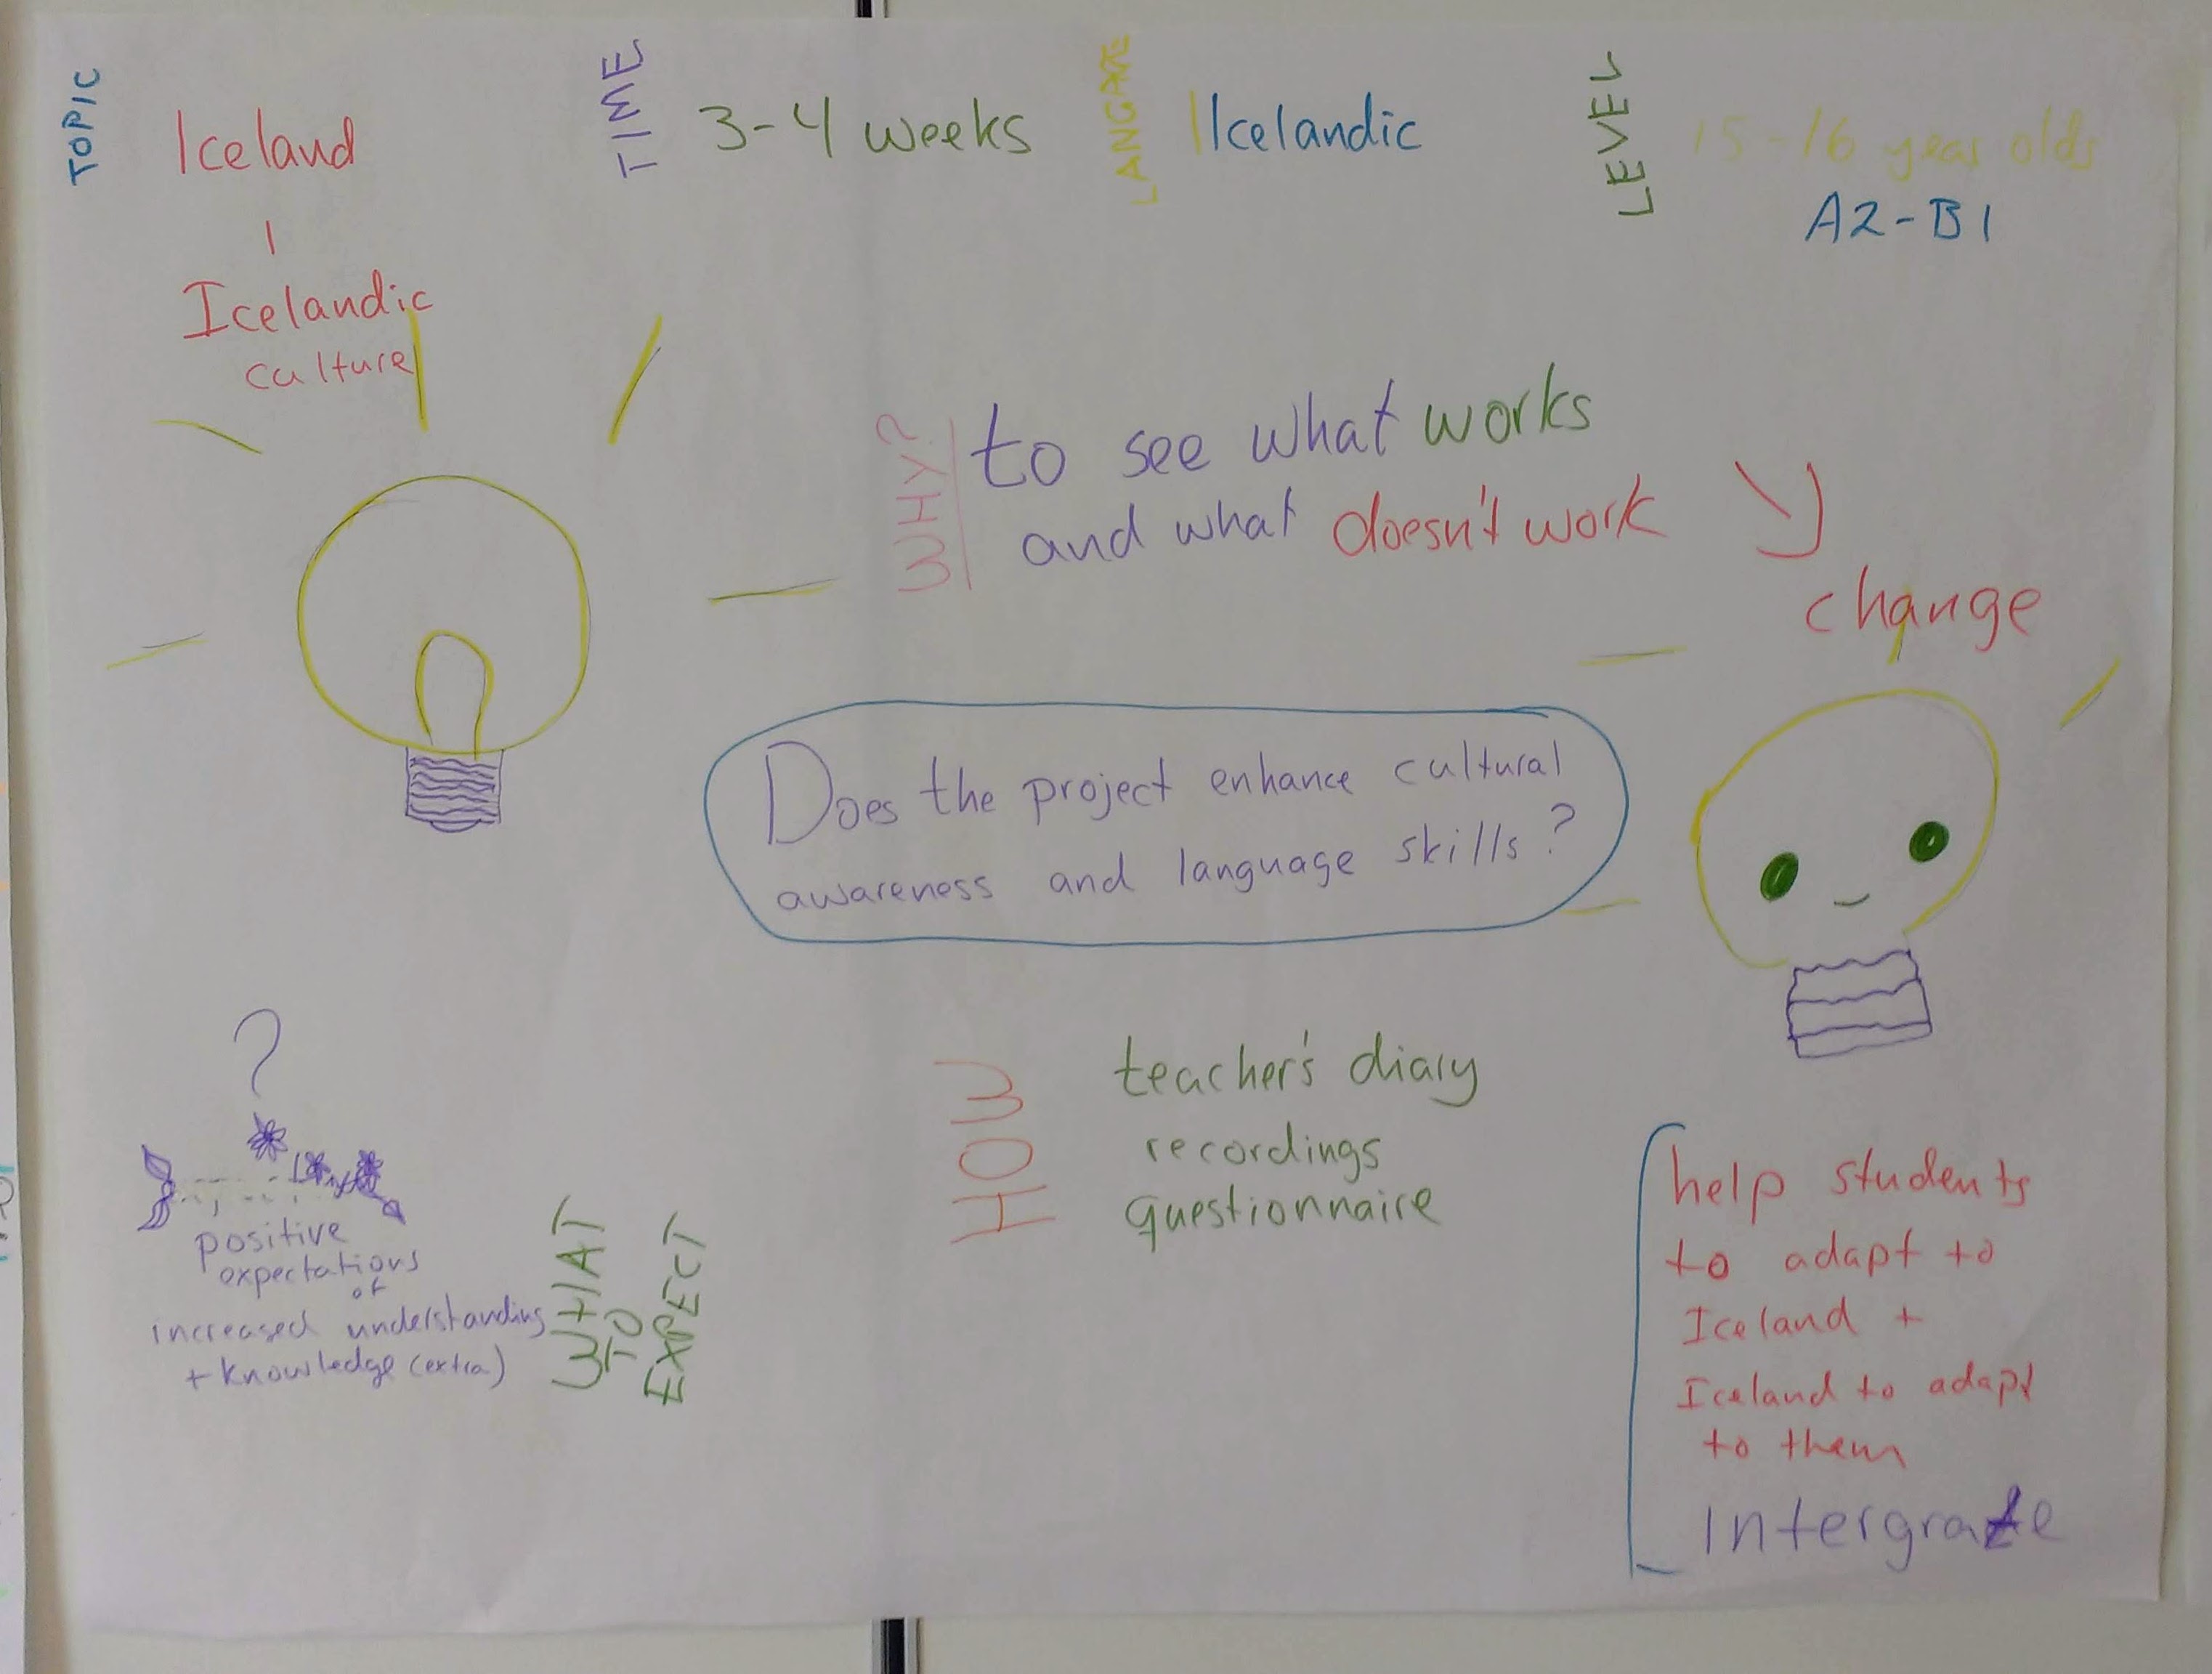 TOPIC
Iceland
Icelandic
culture
TIME
3-4 weeks
LANGAGE
Icelandic
LEVEL
15-16 year olds
A2-B1
WHY?
to see what works
and what doesn't work
change
Does the project enhance cultural
awareness and language skills?
?
positive
expectations
of
increased understanding
+ knowledge (extra)
WHAT
TO
EXPECT
HOW
teacher's diary
recordings
questionnaire
help students
to adapt to
Iceland +
Iceland to adapt
to them
Intergrate